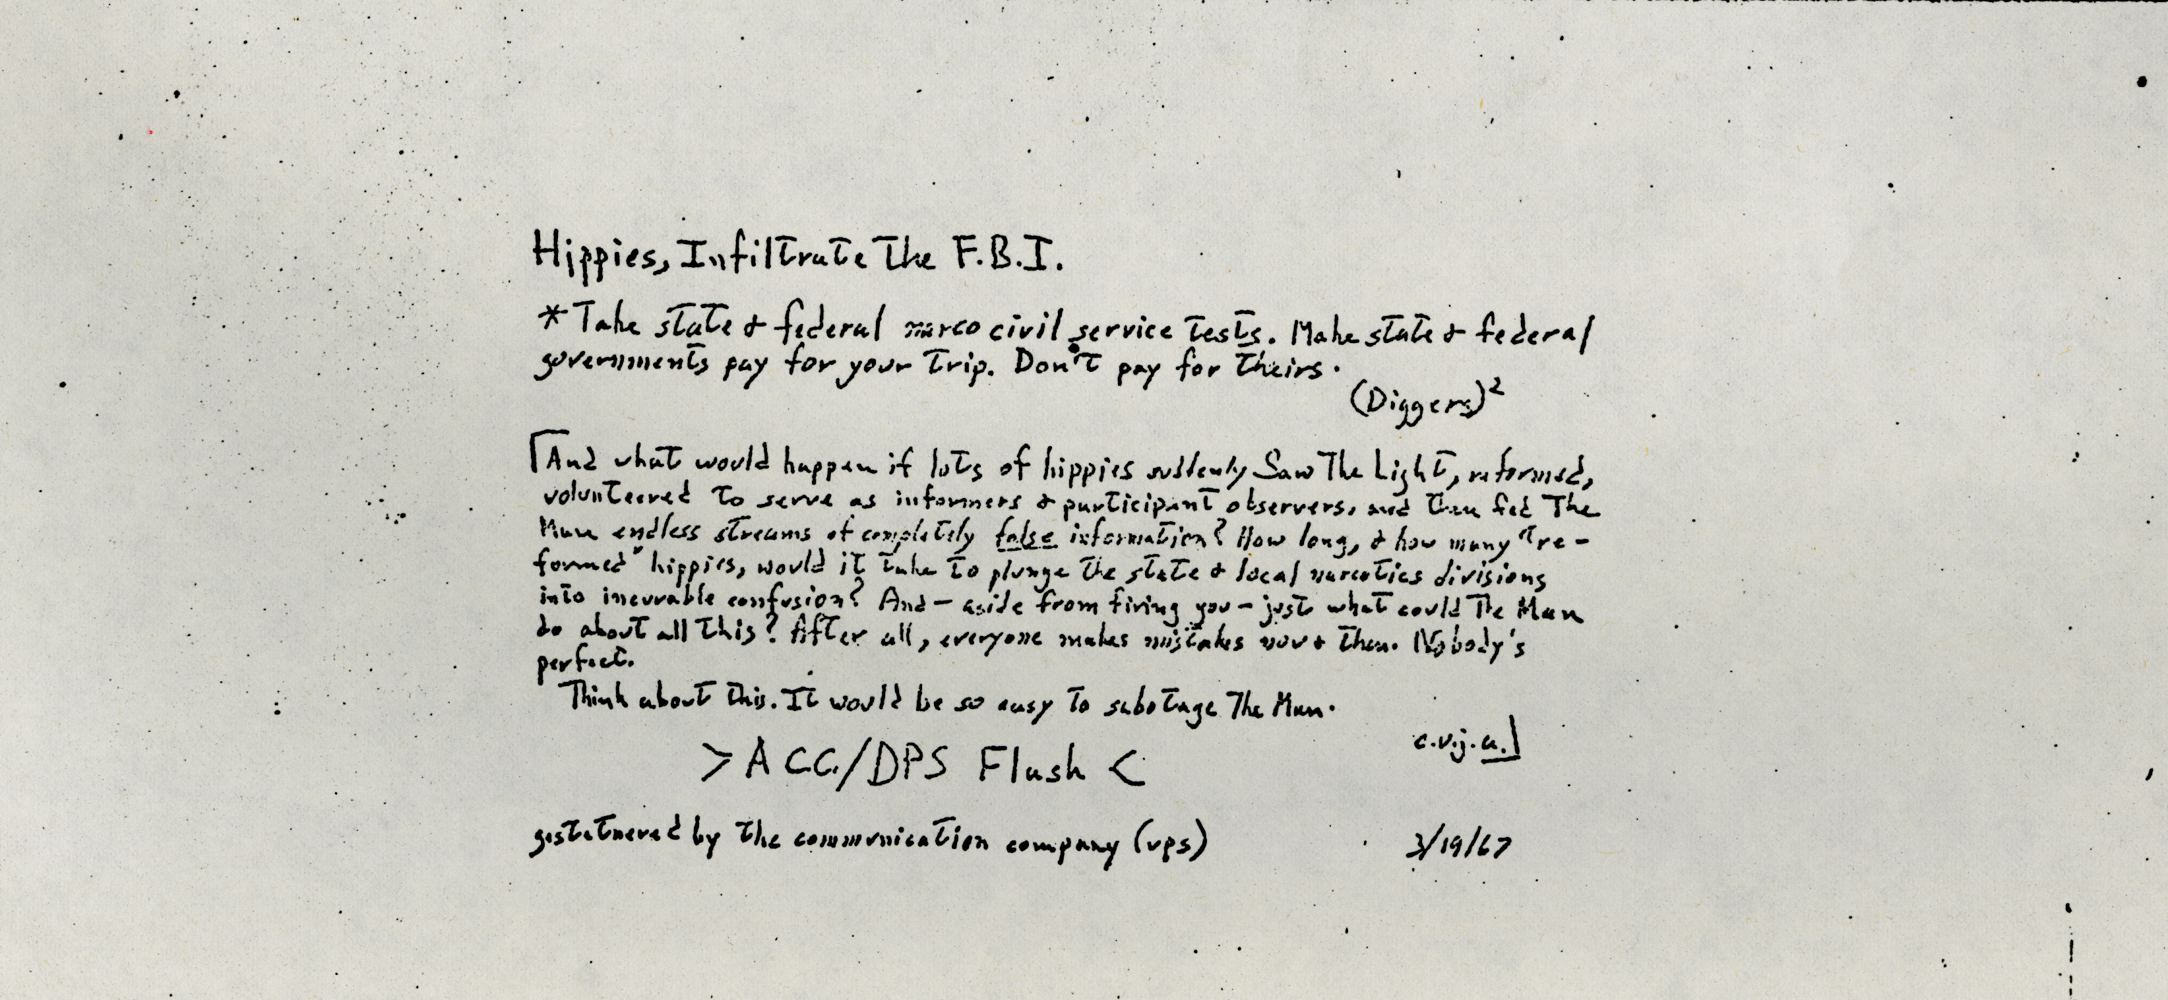 Hippies, Infiltrate The F.B.I.
* Take state & federal narco civil service tests. Make state & federal
governments pay for your trip. Don't pay for theirs.
(Diggers)²
⌈And what would happen if lots of hippies suddenly Saw The Light, reformed,
volunteered to serve as informers & participant observers, and then fed The
Man endless streams of completely false information? How long, & how many "re-
formed" hippies, would it take to plunge the state & local narcotics divisions
into incurable confusion? And — aside from firing you — just what could The Man
do about all this? After all, everyone makes mistakes now & then. Nobody's
perfect.
Think about this. It would be so easy to sabotage The Man.
c.v.j.a.⌋
> A CC/DPS Flash <
gestetnered by the communication company (ups)
3/19/67